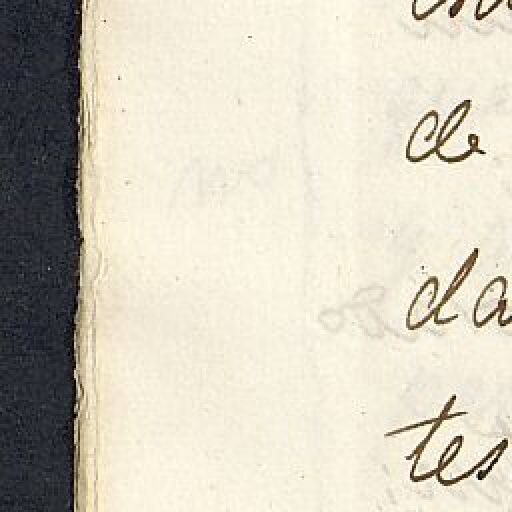 de
da
tes